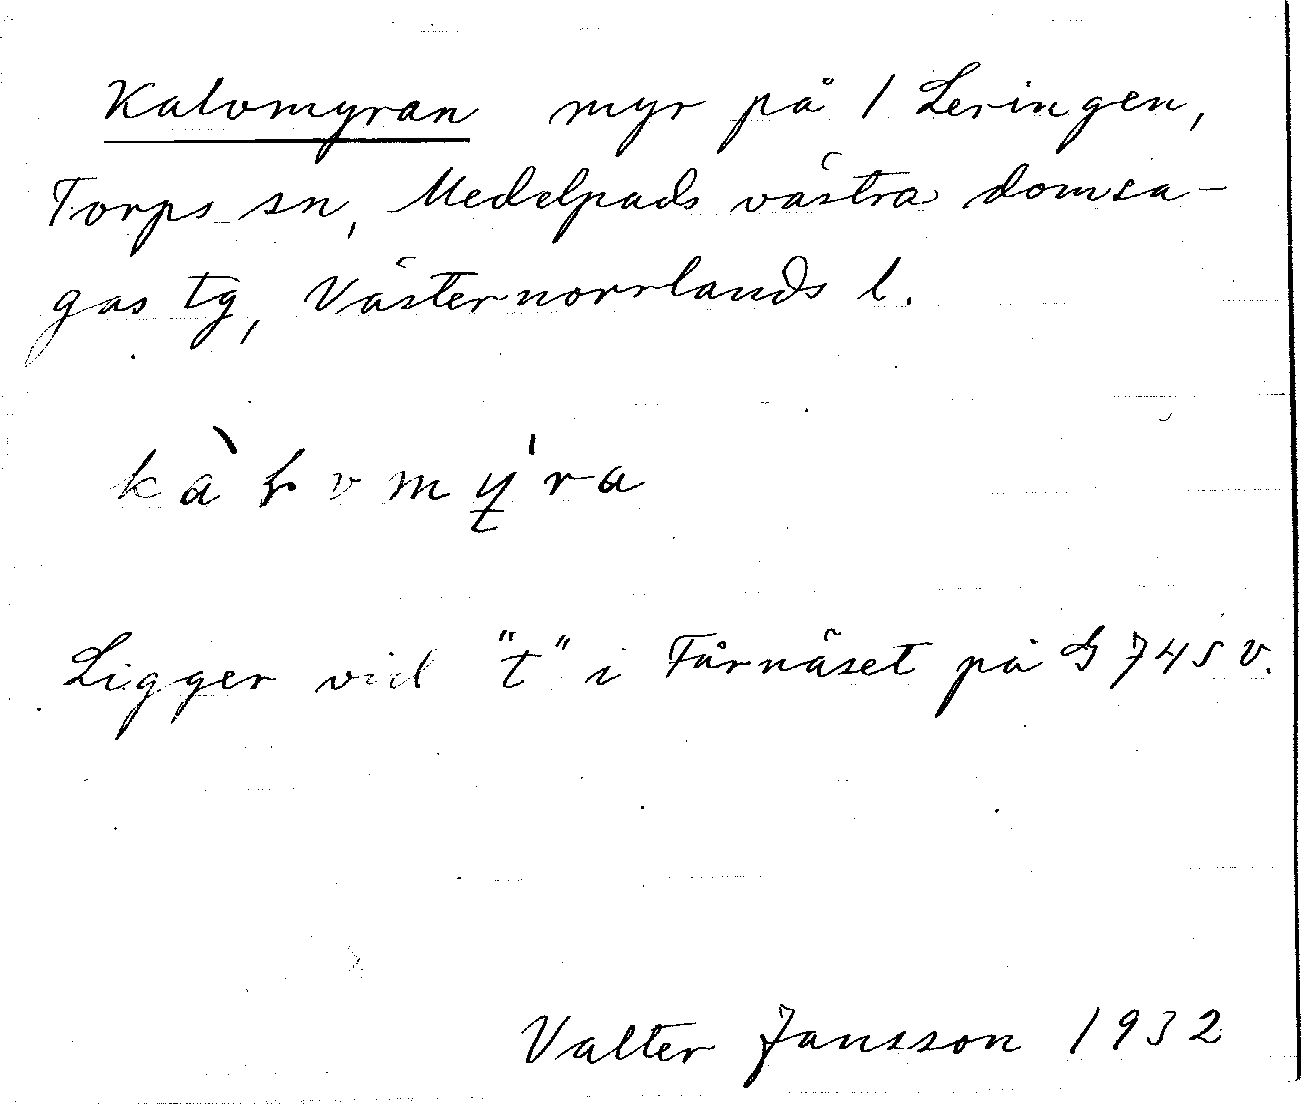 Kalvmyran myr på 1 Leringen,
Torps sn, Medelpads västra domsa-
gas tg, Västernorrlands l.
Ligger vid "t" i Fårnäset på G 745 V.
Valter Jansson 1932